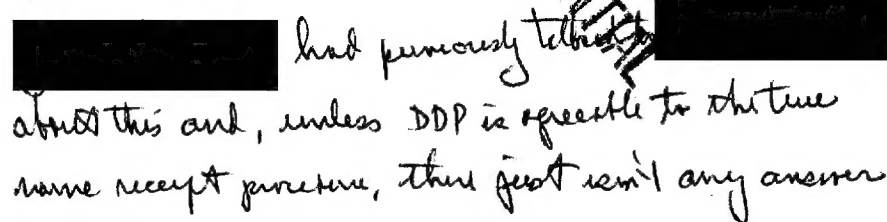 had previously talked to
about this and, unless DDP is agreeable to the true
name receipt procedure, there just isn't any answer